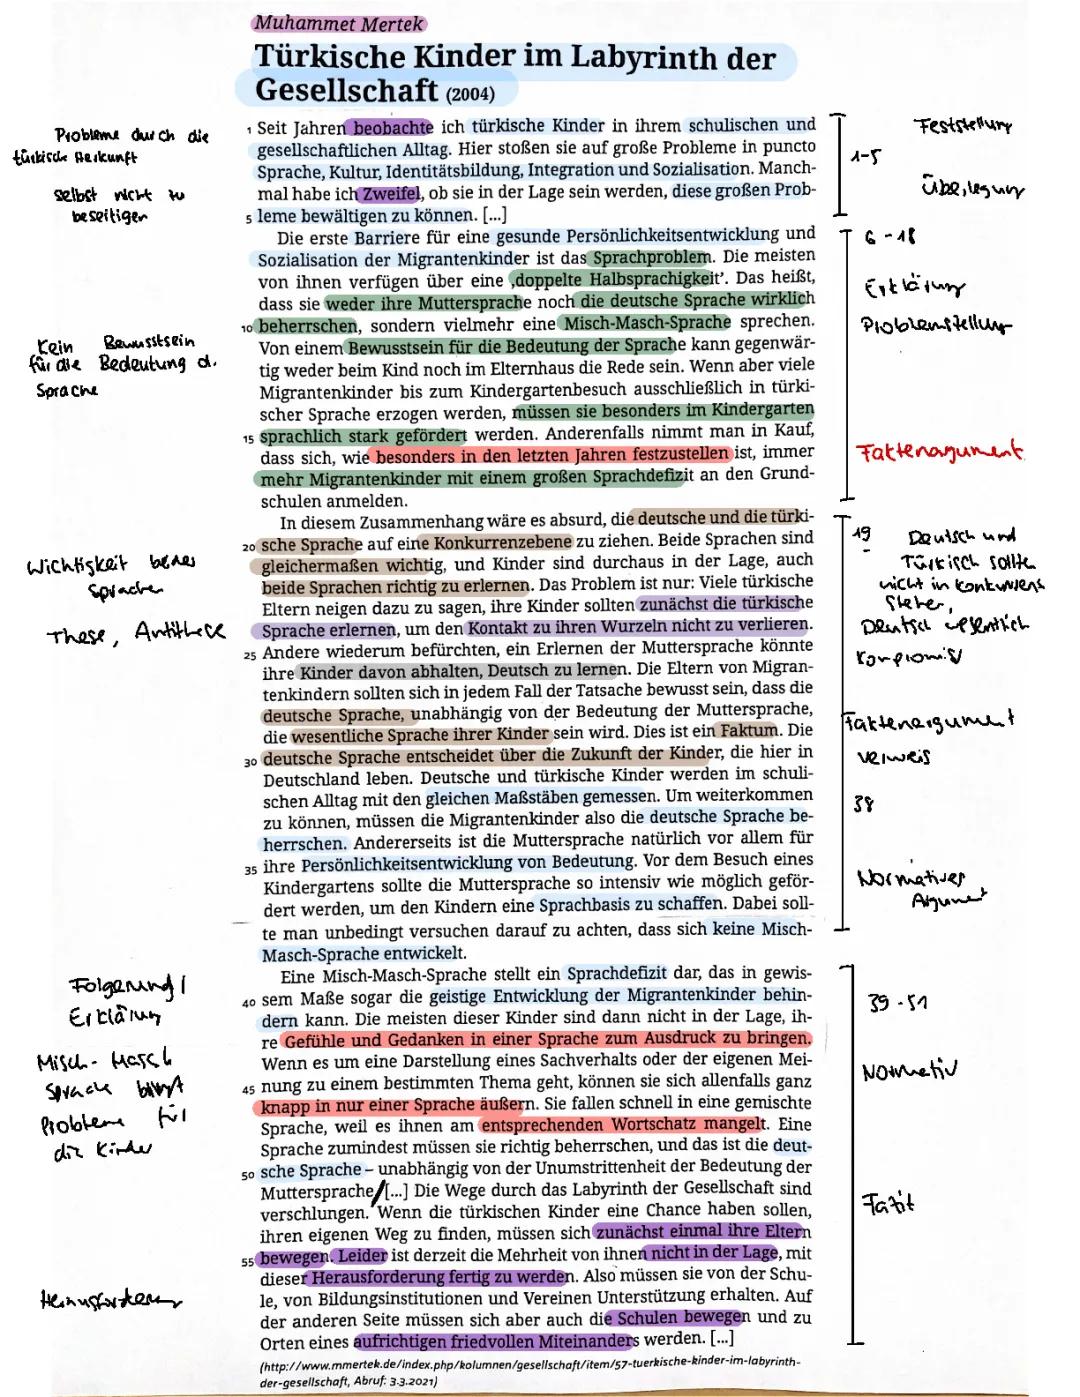 Muhammet Mertek
Türkische Kinder im Labyrinth der
Gesellschaft (2004)
1 Seit Jahren beobachte ich türkische Kinder in ihrem schulischen und
gesellschaftlichen Alltag. Hier stoßen sie auf große Probleme in puncto
Sprache, Kultur, Identitätsbildung, Integration und Sozialisation. Manch-
mal habe ich Zweifel, ob sie in der Lage sein werden, diese großen Prob-
5 leme bewältigen zu können. [...]
Die erste Barriere für eine gesunde Persönlichkeitsentwicklung und
Sozialisation der Migrantenkinder ist das Sprachproblem. Die meisten
von ihnen verfügen über eine ‚doppelte Halbsprachigkeit'. Das heißt,
dass sie weder ihre Muttersprache noch die deutsche Sprache wirklich
10 beherrschen, sondern vielmehr eine Misch-Masch-Sprache sprechen.
Von einem Bewusstsein für die Bedeutung der Sprache kann gegenwär-
tig weder beim Kind noch im Elternhaus die Rede sein. Wenn aber viele
Migrantenkinder bis zum Kindergartenbesuch ausschließlich in türki-
scher Sprache erzogen werden, müssen sie besonders im Kindergarten
15 sprachlich stark gefördert werden. Anderenfalls nimmt man in Kauf,
dass sich, wie besonders in den letzten Jahren festzustellen ist, immer
mehr Migrantenkinder mit einem großen Sprachdefizit an den Grund-
schulen anmelden.
In diesem Zusammenhang wäre es absurd, die deutsche und die türki-
20 sche Sprache auf eine Konkurrenzebene zu ziehen. Beide Sprachen sind
gleichermaßen wichtig, und Kinder sind durchaus in der Lage, auch
beide Sprachen richtig zu erlernen. Das Problem ist nur: Viele türkische
Eltern neigen dazu zu sagen, ihre Kinder sollten zunächst die türkische
Sprache erlernen, um den Kontakt zu ihren Wurzeln nicht zu verlieren.
25 Andere wiederum befürchten, ein Erlernen der Muttersprache könnte
ihre Kinder davon abhalten, Deutsch zu lernen. Die Eltern von Migran-
tenkindern sollten sich in jedem Fall der Tatsache bewusst sein, dass die
deutsche Sprache, unabhängig von der Bedeutung der Muttersprache,
die wesentliche Sprache ihrer Kinder sein wird. Dies ist ein Faktum. Die
30 deutsche Sprache entscheidet über die Zukunft der Kinder, die hier in
Deutschland leben. Deutsche und türkische Kinder werden im schuli-
schen Alltag mit den gleichen Maßstäben gemessen. Um weiterkommen
zu können, müssen die Migrantenkinder also die deutsche Sprache be-
herrschen. Andererseits ist die Muttersprache natürlich vor allem für
35 ihre Persönlichkeitsentwicklung von Bedeutung. Vor dem Besuch eines
Kindergartens sollte die Muttersprache so intensiv wie möglich geför-
dert werden, um den Kindern eine Sprachbasis zu schaffen. Dabei soll-
te man unbedingt versuchen darauf zu achten, dass sich keine Misch-
Masch-Sprache entwickelt.
Eine Misch-Masch-Sprache stellt ein Sprachdefizit dar, das in gewis-
40 sem Maße sogar die geistige Entwicklung der Migrantenkinder behin-
dern kann. Die meisten dieser Kinder sind dann nicht in der Lage, ih-
re Gefühle und Gedanken in einer Sprache zum Ausdruck zu bringen.
Wenn es um eine Darstellung eines Sachverhalts oder der eigenen Mei-
45 nung zu einem bestimmten Thema geht, können sie sich allenfalls ganz
knapp in nur einer Sprache äußern. Sie fallen schnell in eine gemischte
Sprache, weil es ihnen am entsprechenden Wortschatz mangelt. Eine
Sprache zumindest müssen sie richtig beherrschen, und das ist die deut-
50 sche Sprache – unabhängig von der Unumstrittenheit der Bedeutung der
Muttersprache/[...] Die Wege durch das Labyrinth der Gesellschaft sind
verschlungen. Wenn die türkischen Kinder eine Chance haben sollen,
ihren eigenen Weg zu finden, müssen sich zunächst einmal ihre Eltern
55 bewegen. Leider ist derzeit die Mehrheit von ihnen nicht in der Lage, mit
dieser Herausforderung fertig zu werden. Also müssen sie von der Schu-
le, von Bildungsinstitutionen und Vereinen Unterstützung erhalten. Auf
der anderen Seite müssen sich aber auch die Schulen bewegen und zu
Orten eines aufrichtigen friedvollen Miteinanders werden. [...]
(http://www.mmertek.de/index.php/kolumnen/gesellschaft/item/57-tuerkische-kinder-im-labyrinth-
der-gesellschaft, Abruf: 3.3.2021)
Probleme durch die
türkische Herkunft
selbst nicht zu
beseitigen
Kein Bewusstsein
für die Bedeutung d.
Sprache
Wichtigkeit beides
Sprachen
These, Antithese
Folgerung /
Erklärung
Misch-Masch
Sprache bringt
Probleme für
die Kinder
Herausforderung
Feststellung
1-5
Überlegung
6-18
Erklärung
Problemstellung
Faktenargument
19
Deutsch und
Türkisch sollte
nicht in Konkurrenz
stehen,
Deutsch wesentlich
Kompromiss
Faktenargument
verweis
38
Normatives
Argument
39-51
Normativ
Fazit